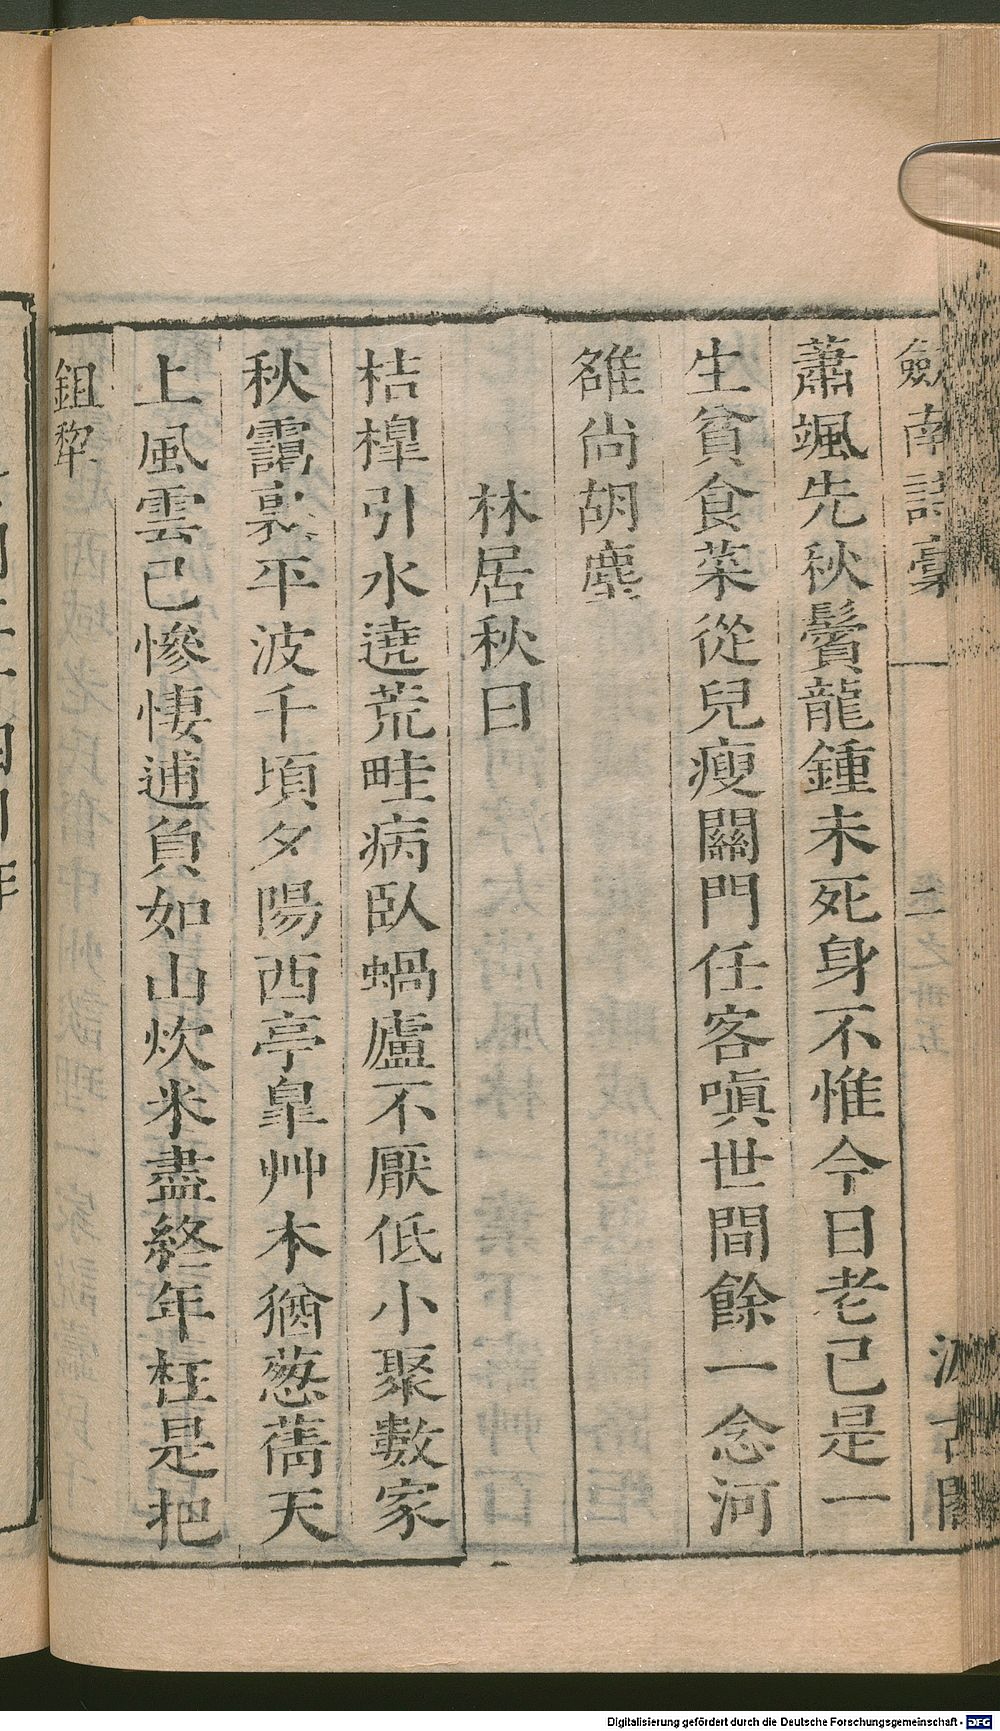 劒南詩稾 二 汲古閣
蕭颯先秋鬢龍鍾未死身不惟今日老已是一
生貧食菜從兒瘦關門任客嗔世間餘一念河
雒尚胡塵
林居秋日
桔槹引水遶荒畦病臥蝸廬不厭低小聚數家
秋靄裏平波千頃夕陽西亭臯艸木猶蔥蒨天
上風雲已慘悽逋負如山炊米盡終年枉是把
鉏犂
Digitalisierung gefördert durch die Deutsche Forschungsgemeinschaft - DFG